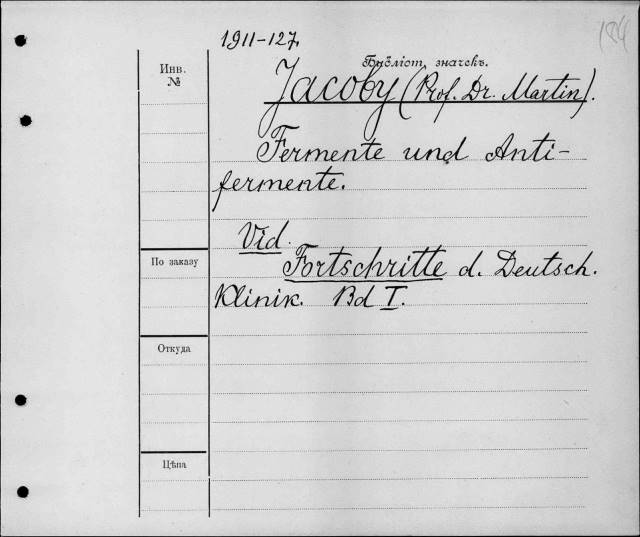 184
1911-127.
Инв.
№
Библіот. значекъ.
Jacoby (Prof. Dr. Martin).
Fermente und Anti-
fermente.
Vid.
По заказу
Fortschritte d. Deutsch.
Klinik. Bd I.
Откуда
Цѣна